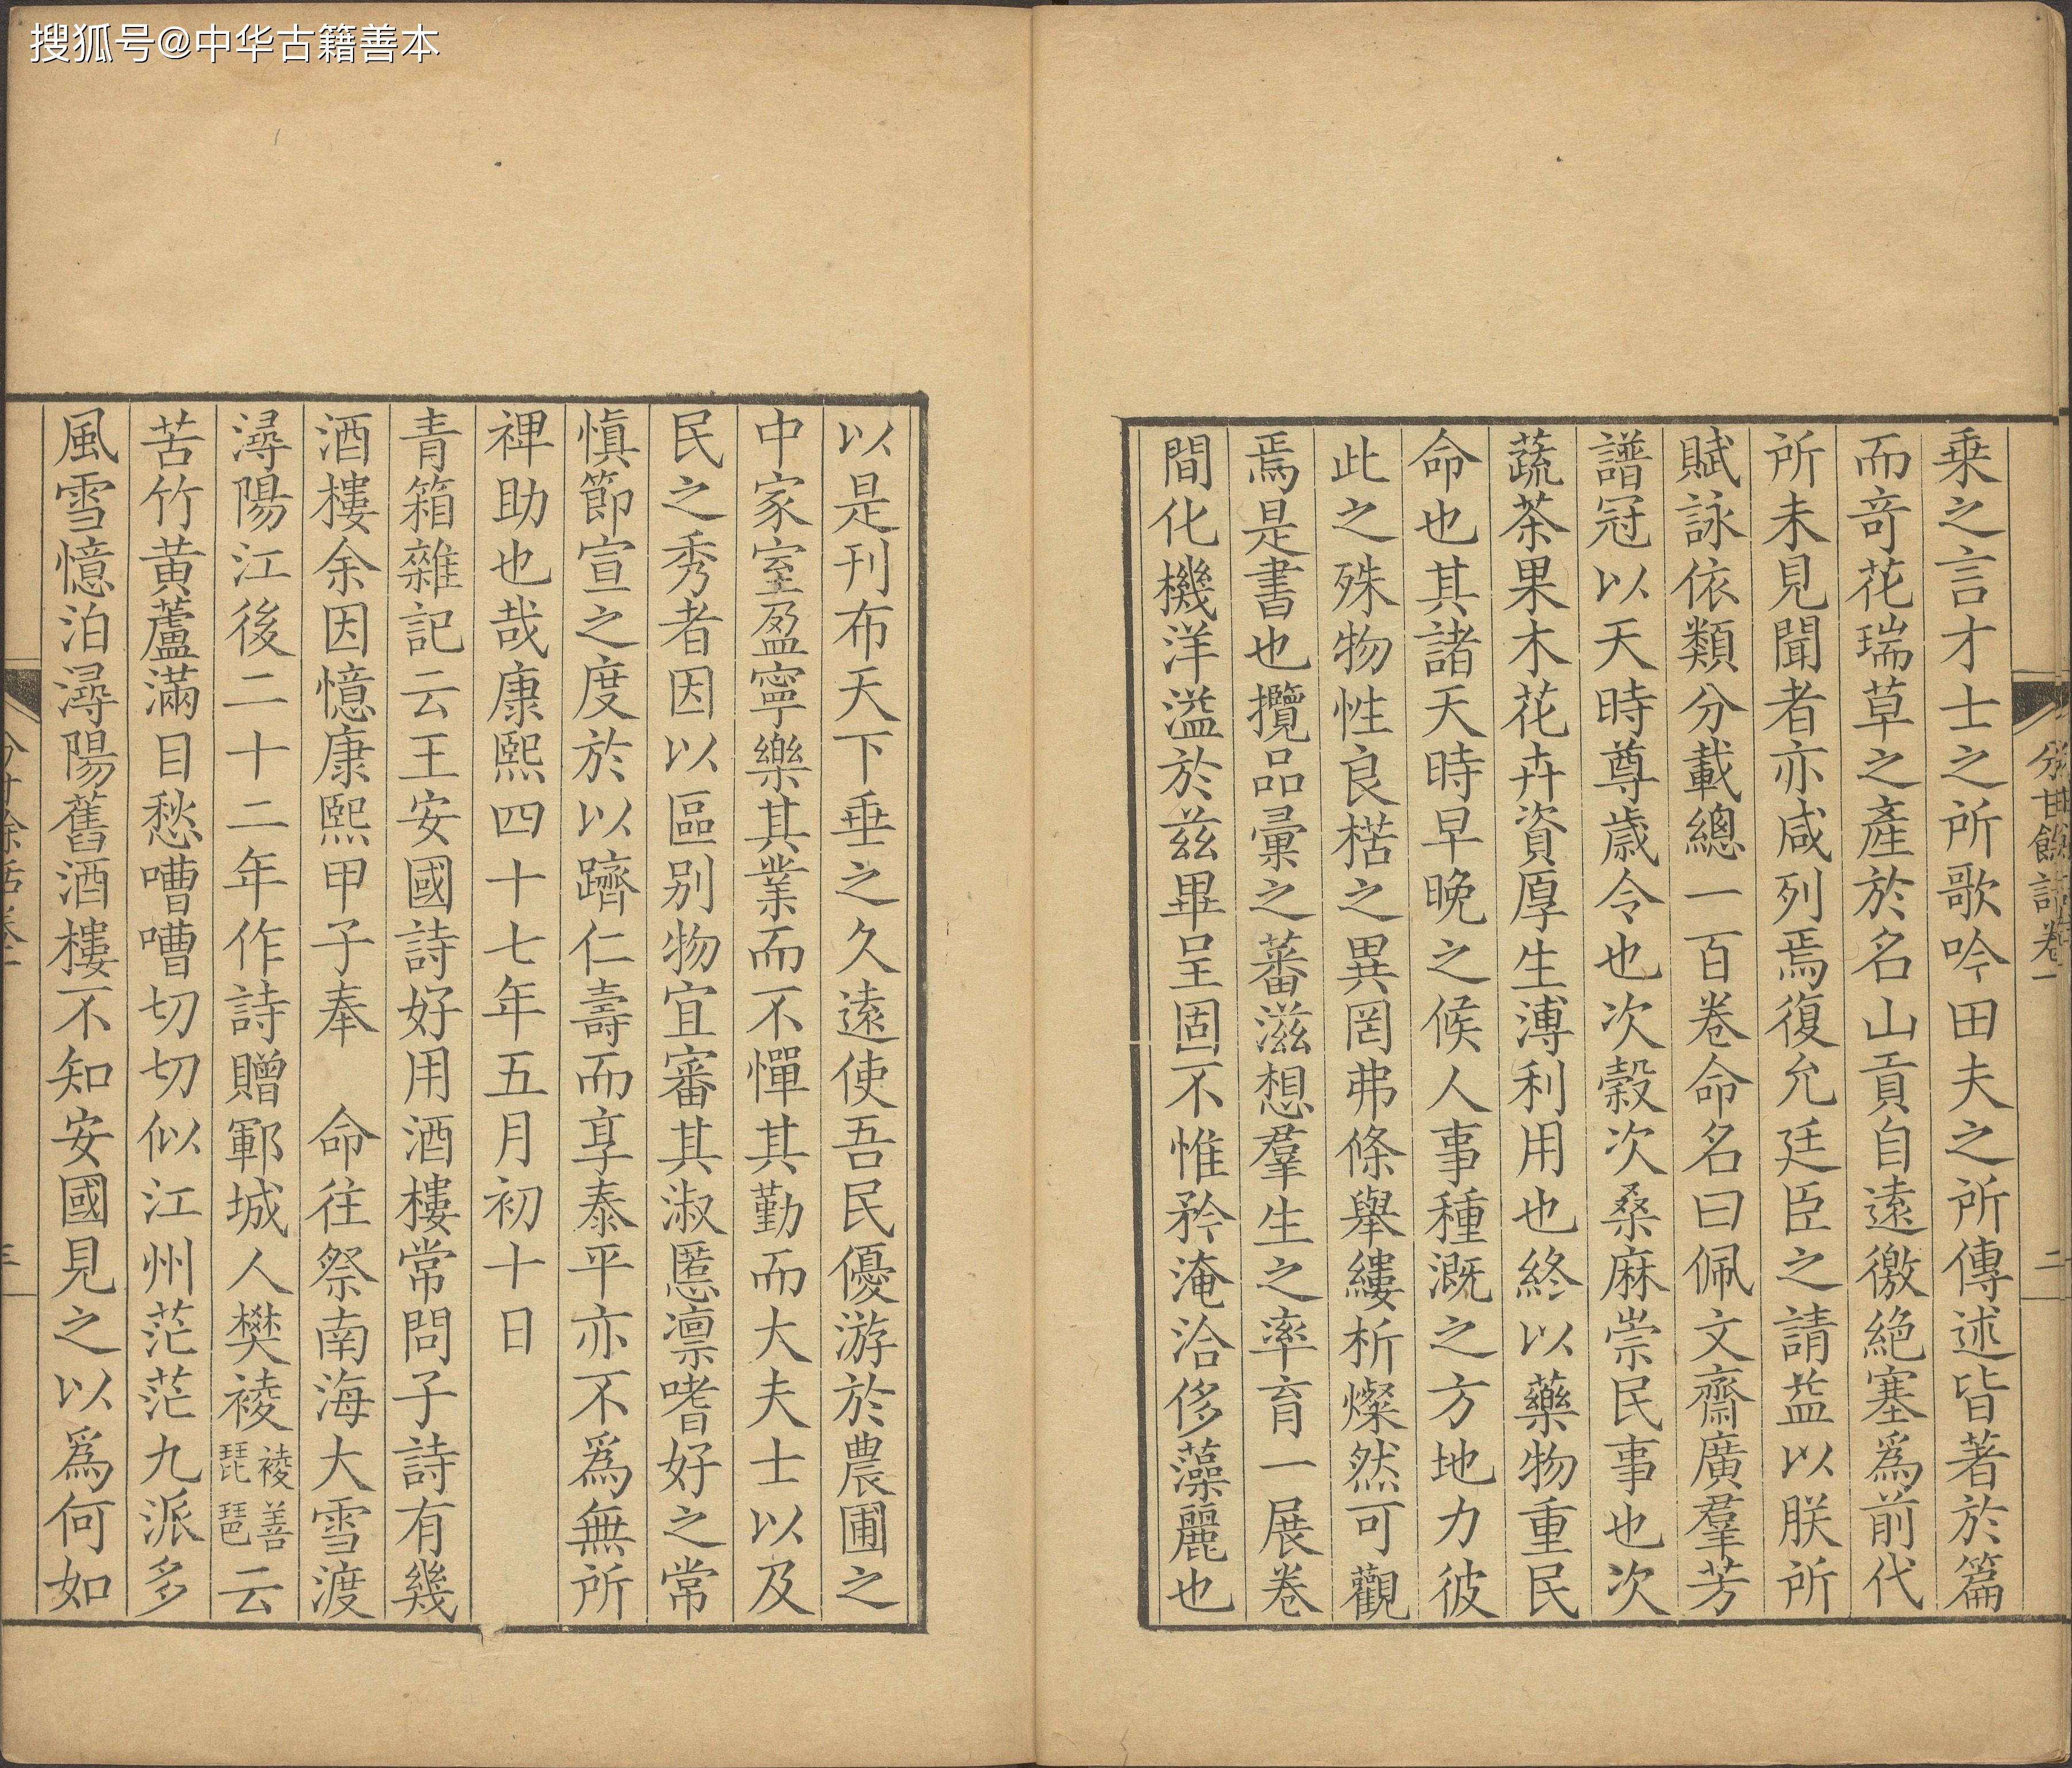 搜狐号@中华古籍善本
分甘餘話卷一
二
乗之言才士之所歌吟田夫之所傳述皆著於篇
而竒花瑞草之產於名山貢自遠徼絕塞爲前代
所未見聞者亦咸列焉復允廷臣之請益以朕所
賦詠依類分載總一百卷命名曰佩文齋廣羣芳
譜冠以天時尊歲令也次穀次桑麻崇民事也次
蔬茶果木花卉資厚生溥利用也終以藥物重民
命也其諸天時早晚之候人事種溉之方地力彼
此之殊物性良楛之異罔弗條舉縷析燦然可觀
焉是書也攬品彙之蕃滋想羣生之率育一展卷
間化機洋溢於兹畢呈固不惟矜淹洽侈藻麗也
以是刊布天下垂之久遠使吾民優游於農圃之
中家室盈寧樂其業而不憚其勤而大夫士以及
民之秀者因以區别物宜審其淑慝凛嗜好之常
慎節宣之度於以躋仁壽而享泰平亦不爲無所
裨助也哉康熙四十七年五月初十日
青箱雜記云王安國詩好用酒樓常問子詩有幾
酒樓余因憶康熙甲子奉　命往祭南海大雪渡
潯陽江後二十二年作詩贈鄆城人樊祾祾善琵琶云
苦竹黄蘆滿目愁嘈嘈切切似江州茫茫九派多
風雪憶泊潯陽舊酒樓不知安國見之以爲何如